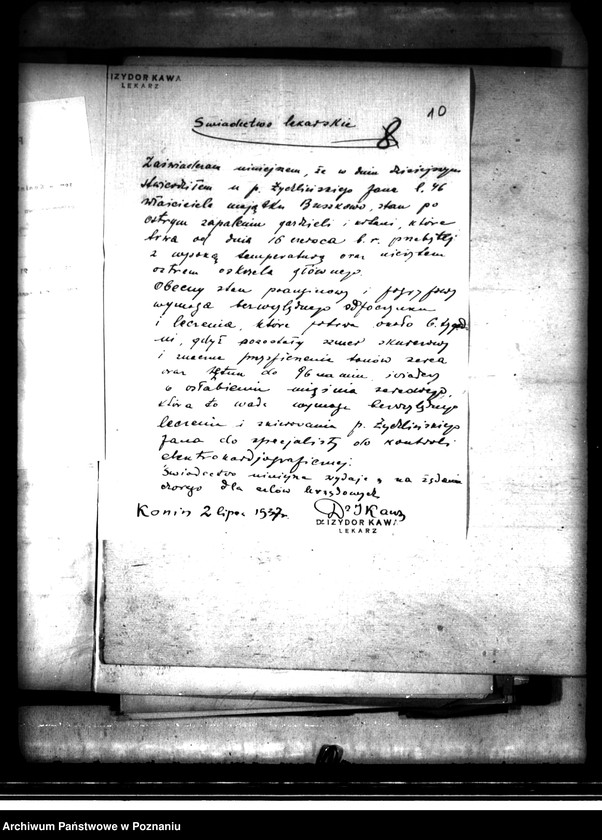 IZYDOR KAWA
LEKARZ
10
Świadectwo lekarskie
Zaświadczam niniejszem, że w dniu dzisiejszym
stwierdziłem u p. Żychlińskiego Jana l. 46
właściciela majątku Buszkowo, stan po
ostrym zapaleniu gardzieli i krtani, które
trwa od dnia 16 czerwca b.r. przebytej
z wysoką temperaturą oraz
ostrem oskrzela głównego.
Obecny stan poanginowy i
wymaga bezwzględnego odpoczynku
i leczenia, które potrwa około 6 tygod
ni, gdyż pozostały szmer skurczowy
i znaczne przyciszenie tonów serca
oraz tętno do 96 na min. świadczy
o osłabieniu mięśnia sercowego,
która to wada wymaga bezwzględnego
leczenia i skierowania p. Żychlińskiego
Jana do specjalisty do kontroli
elektrokardjograficznej.
Świadectwo niniejsze wydaję na żądanie
chorego dla celów urzędowych
Konin 2 lipca 1937 r.
Dr I Kawa
Dr. IZYDOR KAWA
LEKARZ
Archiwum Państwowe w Poznaniu